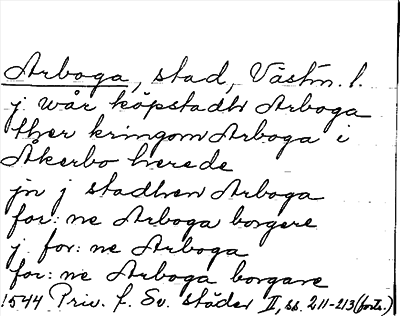 Arboga, stad, Västm. l.
j wår köpstadh Arboga
ther kringom Arboga i
Åkerbo herede
jn j stadhen Arboga
for: ne Arboga borgere
j for: ne Arboga
for: ne Arboga borgare
1544 Priv. f. Sv. städer II, ss. 211-213 (forts.)